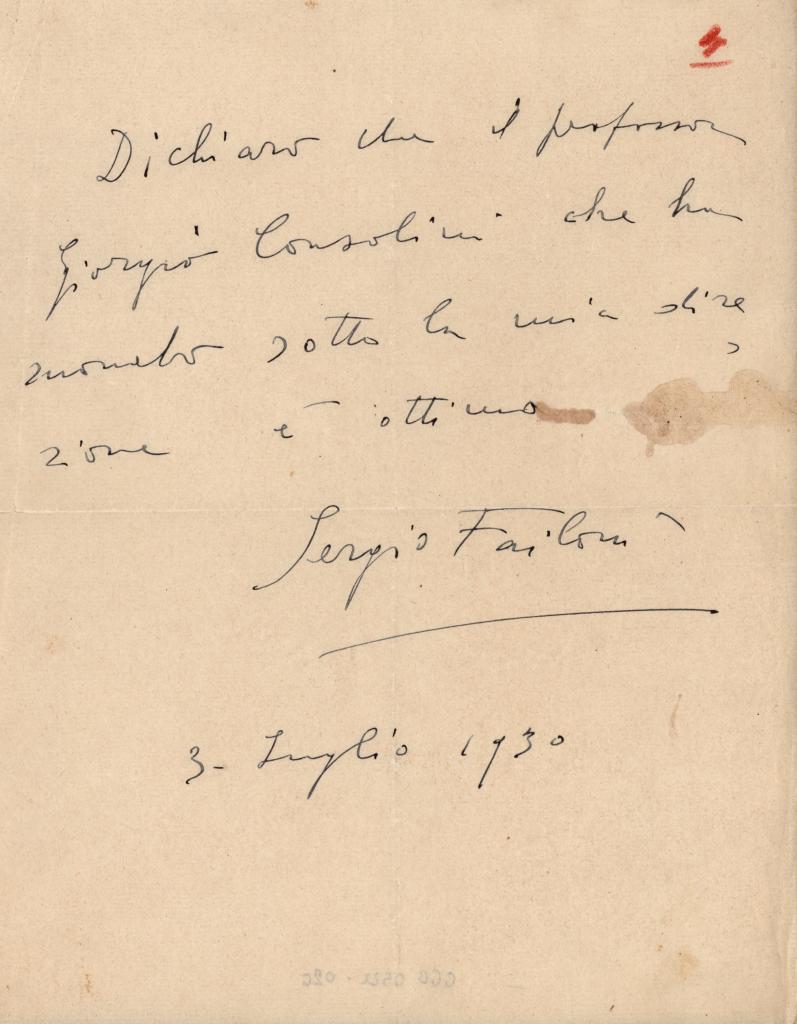 Dichiaro che il professor
Giorgio Consolini che ha
suonato sotto la mia dire
zione è ottimo
Sergio Failoni
3 - Luglio 1930